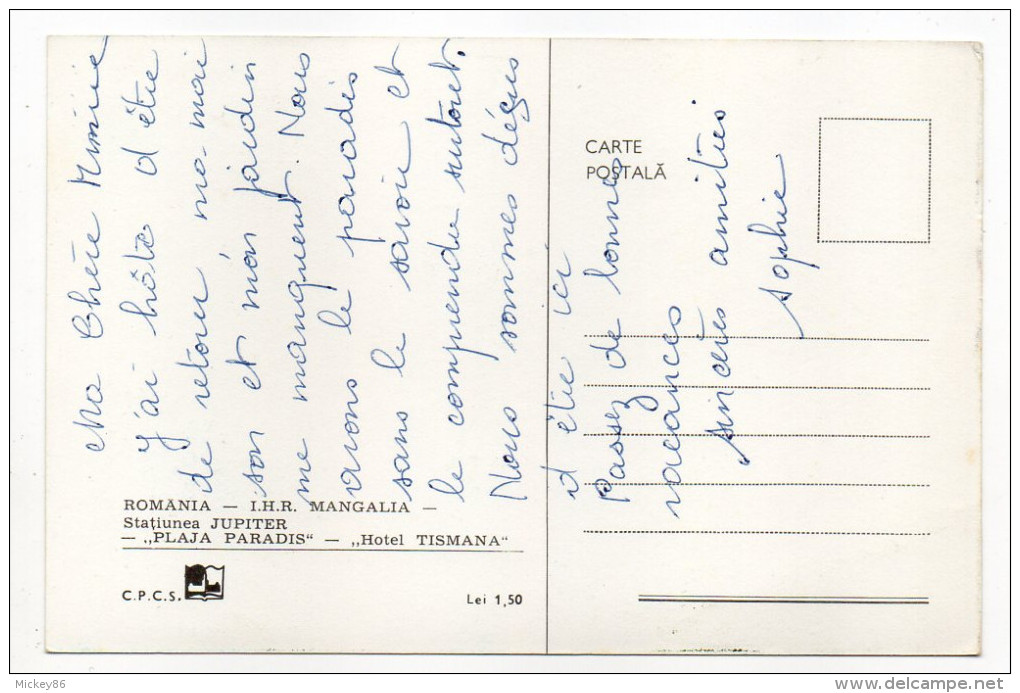 Ma Chère Mimie
J'ai hâte d'être
de retour ma mai
son et mon jardin
me manquent. Nous
avons le paradis
sans le savoir et
le comprendre surtout.
Nous sommes déçus
d'être ici
Passez de bonnes
vacances
sincères amitiés
sophie
CARTE
POȘTALĂ
ROMÂNIA — I.H.R. MANGALIA —
Stațiunea JUPITER
— „PLAJA PARADIS“ — „Hotel TISMANA“
C.P.C.S.
Lei 1,50
Mickey86
delcampe.net